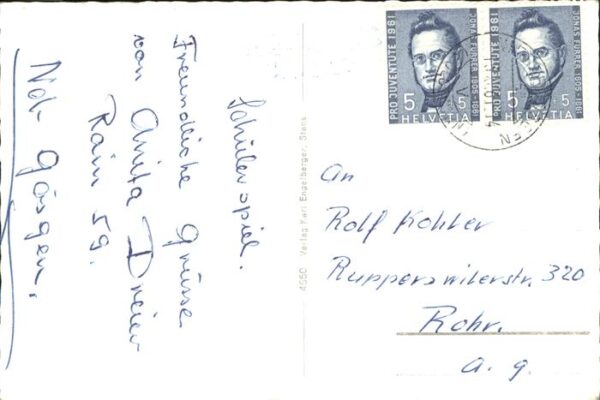 Schülerspiel.
Freundliche Grüsse
von Anita Dreier
Rain 59.
Ndr Gösgen.
4550 Verlag Karl Engelberger, Stans
PRO JUVENTUTE 1961
JONAS FURRER 1805-1861
5+5
HELVETIA
PRO JUVENTUTE 1961
JONAS FURRER 1805-1861
5+5
HELVETIA
An
Rolf Kohler
Rupperswilerstr. 320
Rohr.
a. g.